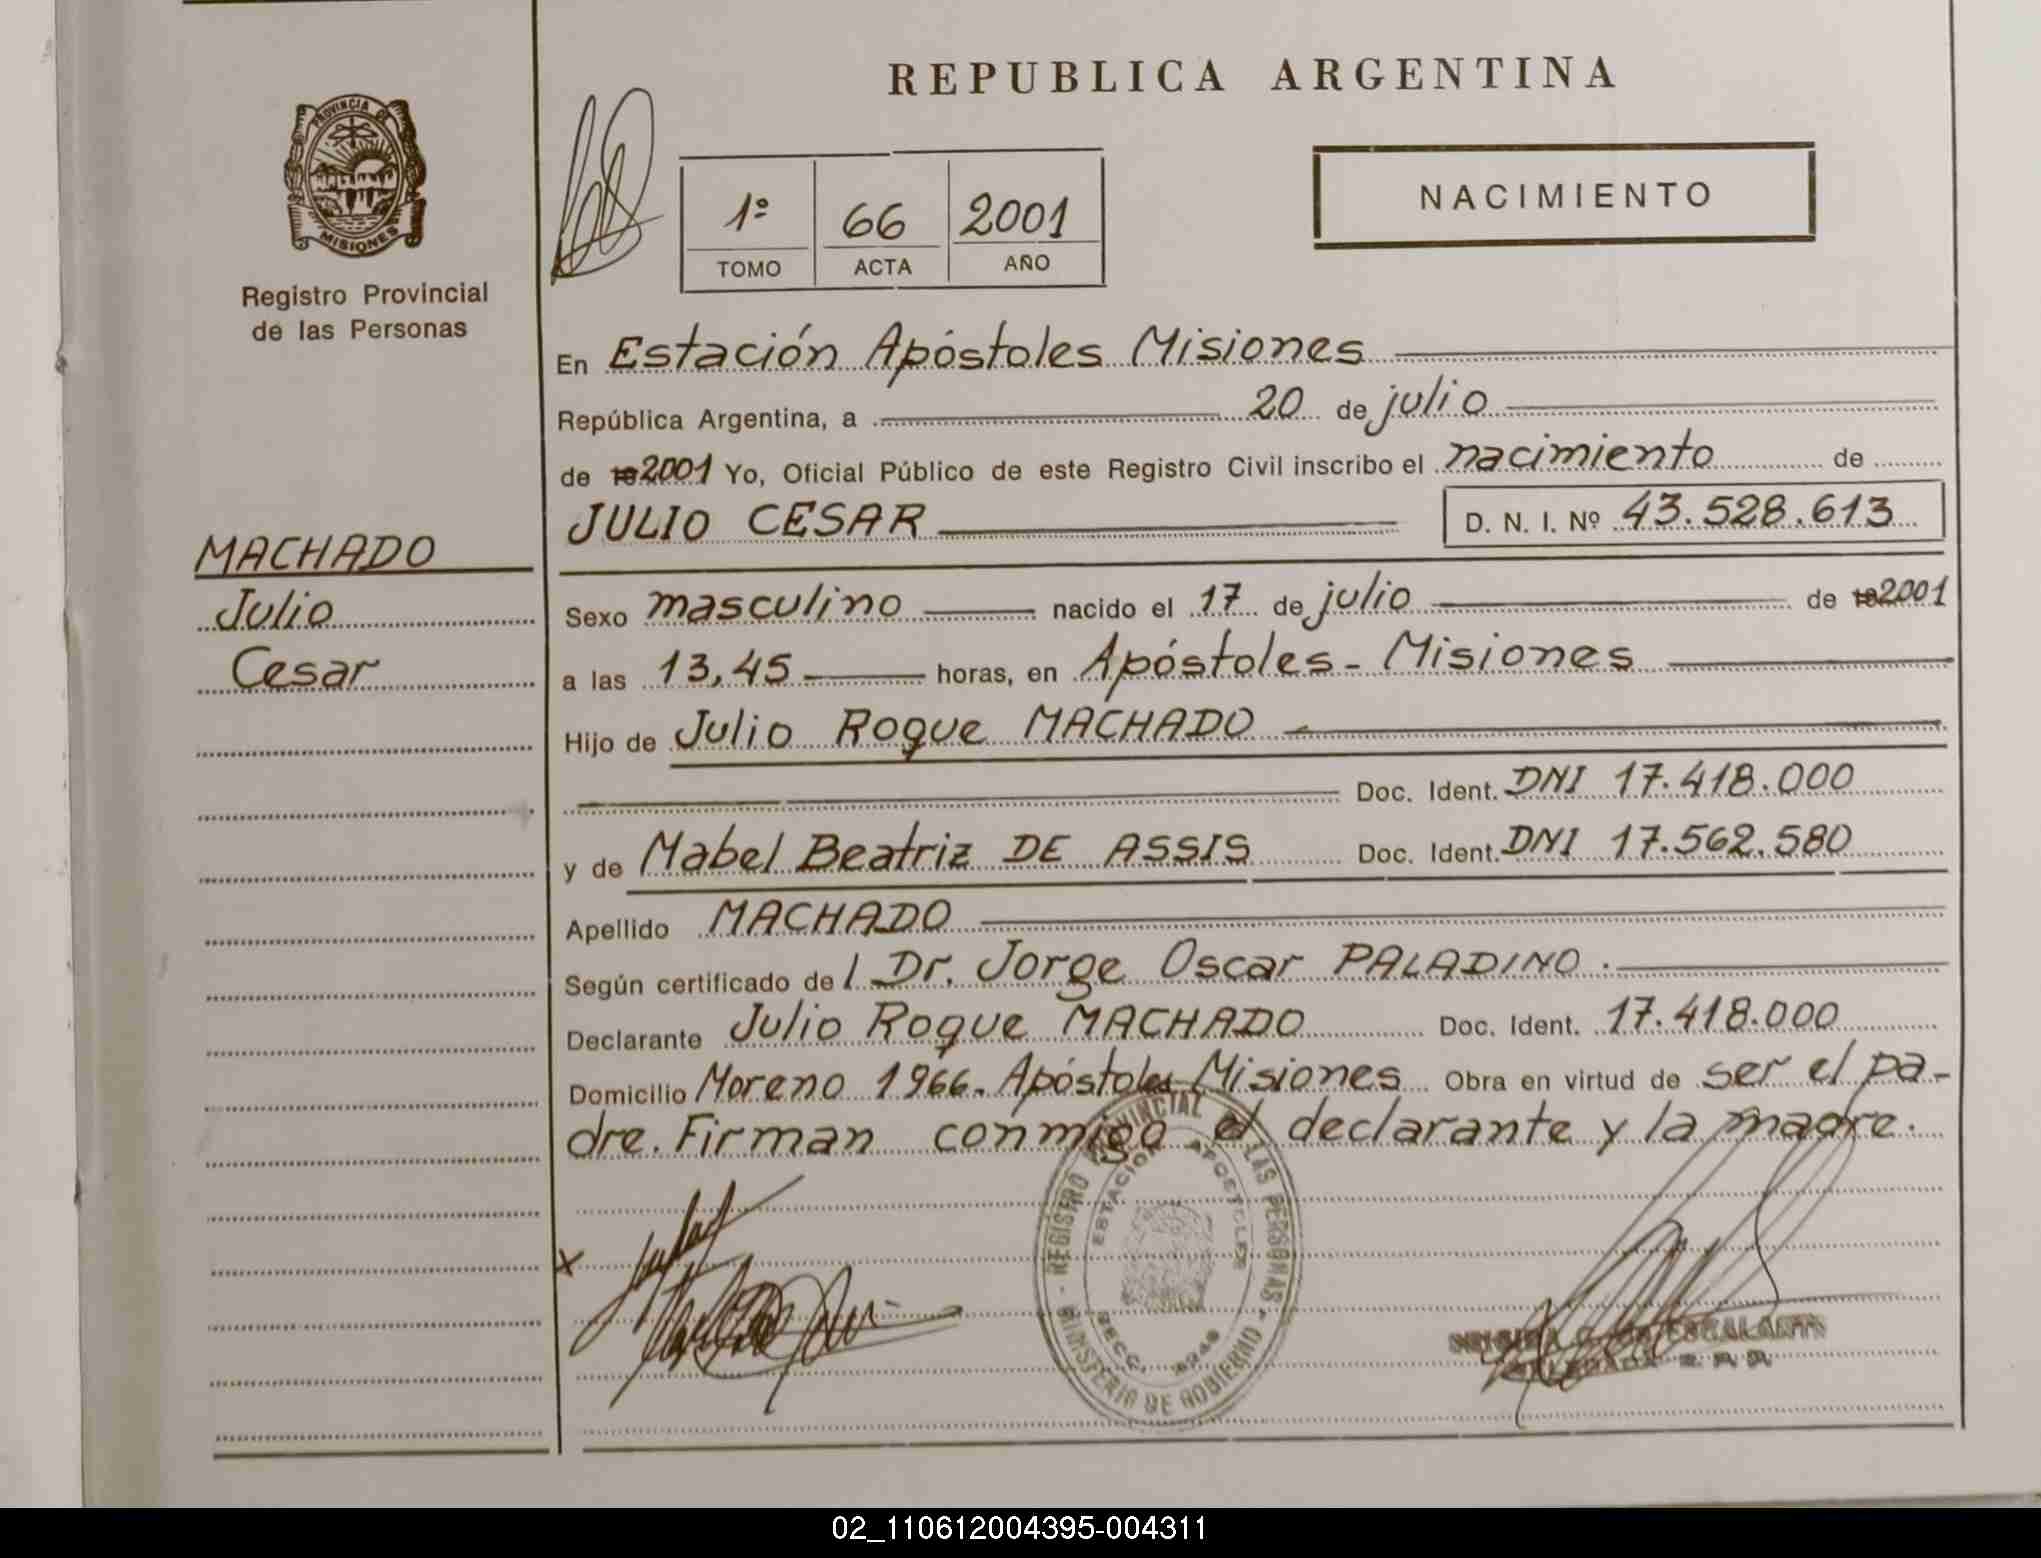 REPUBLICA ARGENTINA
PROVINCIA DE
MISIONES
Registro Provincial
de las Personas
1º 66 2001
TOMO ACTA AÑO
NACIMIENTO
En Estación Apóstoles Misiones
República Argentina, a 20 de julio
de 19 2001 Yo, Oficial Público de este Registro Civil inscribo el nacimiento de
JULIO CESAR D. N. I. Nº 43.528.613
MACHADO
Julio
Cesar
Sexo masculino nacido el 17 de julio de 19 2001
a las 13,45 horas, en Apóstoles - Misiones
Hijo de Julio Roque MACHADO
Doc. Ident. DNI 17.418.000
y de Mabel Beatriz DE ASSIS Doc. Ident. DNI 17.562.580
Apellido MACHADO
Según certificado de l Dr. Jorge Oscar PALADINO.
Declarante Julio Roque MACHADO Doc. Ident. 17.418.000
Domicilio Moreno 1966. Apóstoles Misiones Obra en virtud de ser el pa-
dre. Firman conmigo el declarante y la madre.
REGISTRO PROVINCIAL DE LAS PERSONAS
MINISTERIO DE GOBIERNO
ESTACION APOSTOLES
SECC.
ESCALANTE
DELEGADA R. P. P.
02_110612004395-004311